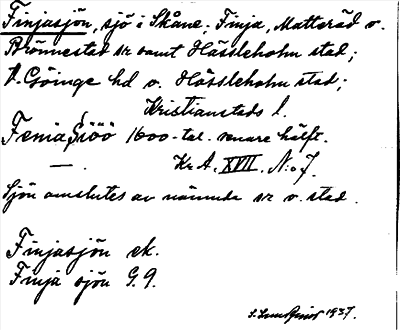 Finjasjön, sjö i Skåne; Finja, Matteröd o.
Brönnestad sn samt Hässleholm stad;
V. Göinge hd o. Hässleholm stad;
Kristianstads l.
Fenia Siöö 1600-tal. senare hälft.
— . Kr. A. XVII. N:o 7.
Sjön omslutes av nämnda sn o. stad.
Finjasjön ek.
Finja sjön G. 9.
1937.